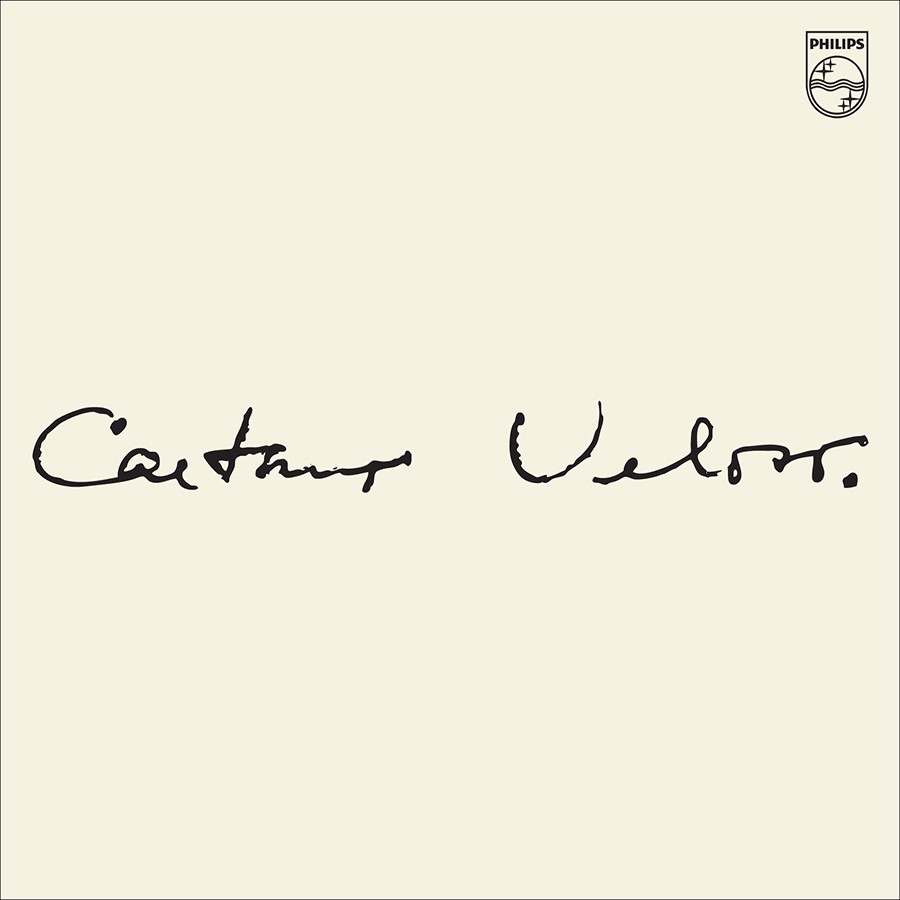 PHILIPS
Caetano Veloso.